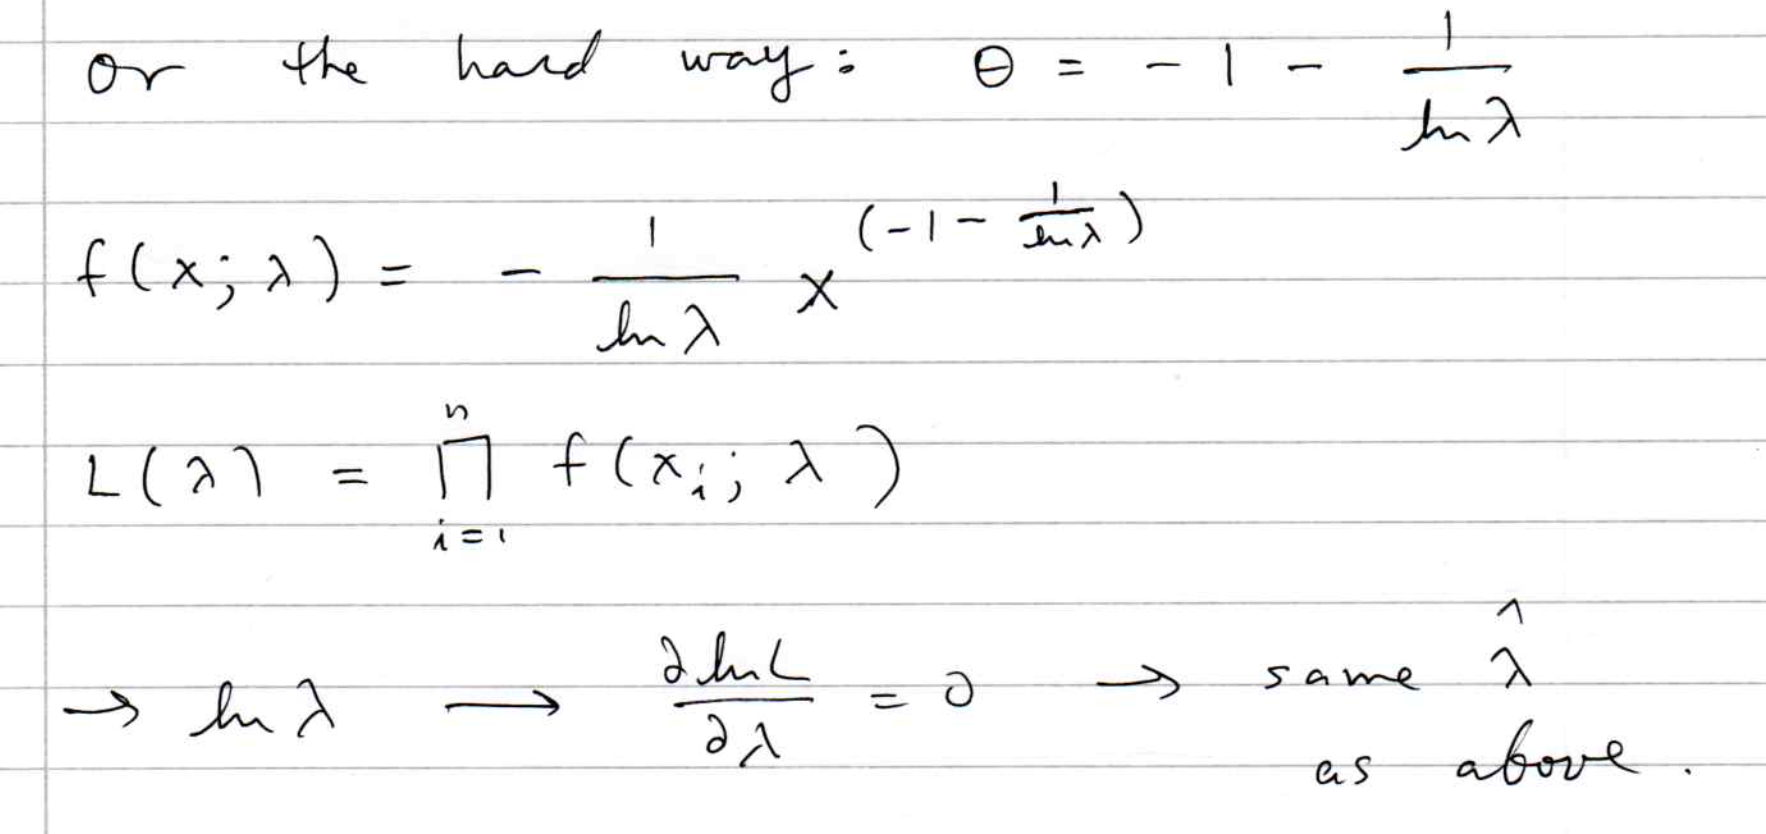 or the hard way: θ = - 1 - 1/ln λ
f(x; λ) = - 1/ln λ x^(-1 - 1/ln λ)
L(λ) = ∏_{i=1}^{n} f(x_i; λ)
→ ln λ → ∂ln L/∂λ = 0 → same λ̂
as above.